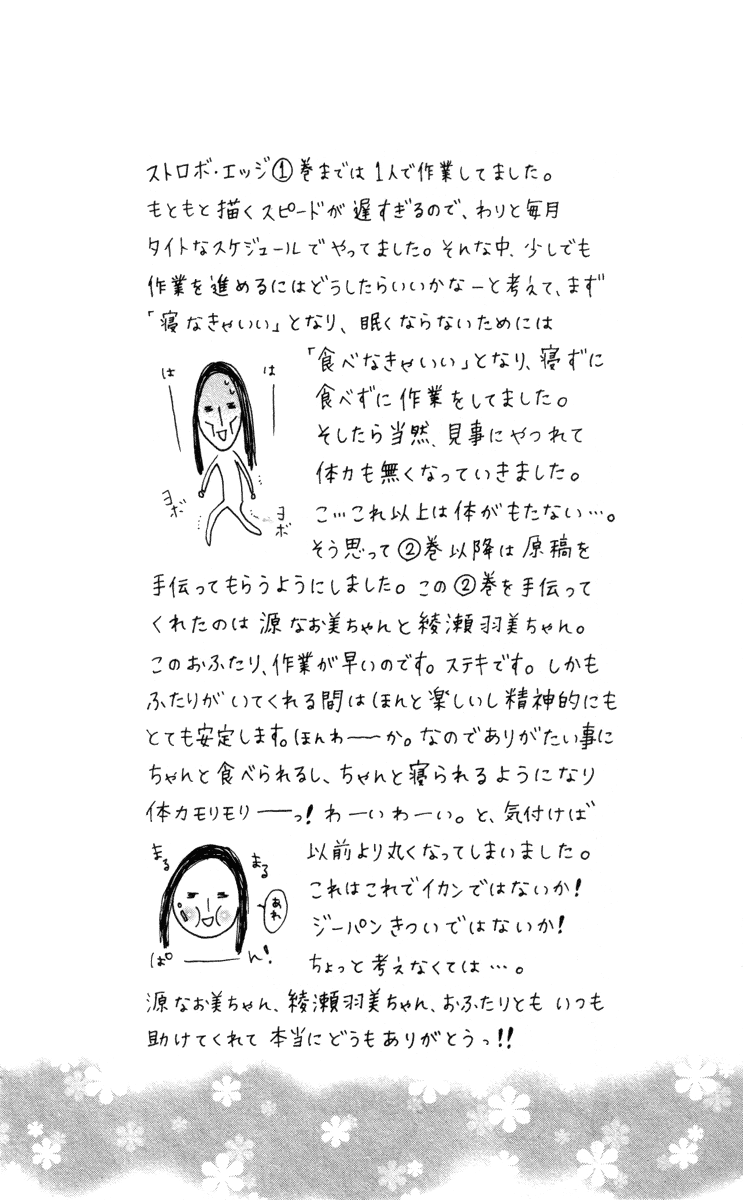 ストロボ・エッジ①巻までは1人で作業してました。
もともと描くスピードが遅すぎるので、わりと毎月
タイトなスケジュールでやってました。そんな中、少しでも
作業を進めるにはどうしたらいいかなーと考えて、まず
「寝なきゃいい」となり、眠くならないためには
「食べなきゃいい」となり、寝ずに
食べずに作業をしてました。
そしたら当然、見事にやつれて
体力も無くなっていきました。
こ…これ以上は体がもたない…。
そう思って②巻以降は原稿を
は
は
ヨボ
ヨボ
手伝ってもらうようにしました。この②巻を手伝って
くれたのは源なお美ちゃんと綾瀬羽美ちゃん。
このおふたり、作業が早いのです。ステキです。しかも
ふたりがいてくれる間はほんと楽しいし精神的にも
とても安定します。ほんわーーか。なのでありがたい事に
ちゃんと食べられるし、ちゃんと寝られるようになり
体力モリモリーーっ!わーいわーい。と、気付けば
以前より丸くなってしまいました。
これはこれでイカンではないか!
ジーパンきついではないか!
ちょっと考えなくては…。
まる
まる
あれ
ぱーーん!
源なお美ちゃん、綾瀬羽美ちゃん、おふたりとも いつも
助けてくれて本当にどうもありがとうっ!!